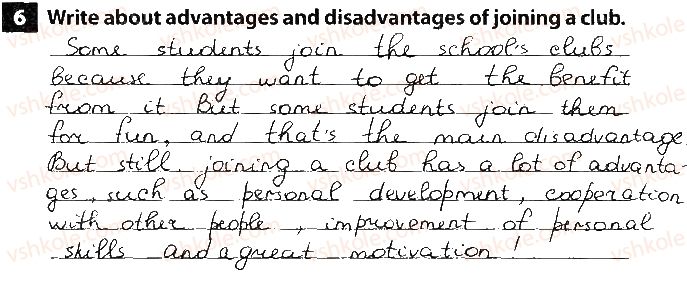 6 Write about advantages and disadvantages of joining a club.
Some students join the school's clubs
because they want to get the benefit
from it But some students join them
for fun, and that's the main disadvantage.
But still joining a club has a lot of advanta-
ges, such as personal development, cooperation
with other people, improvement of personal
skills and a great motivation!